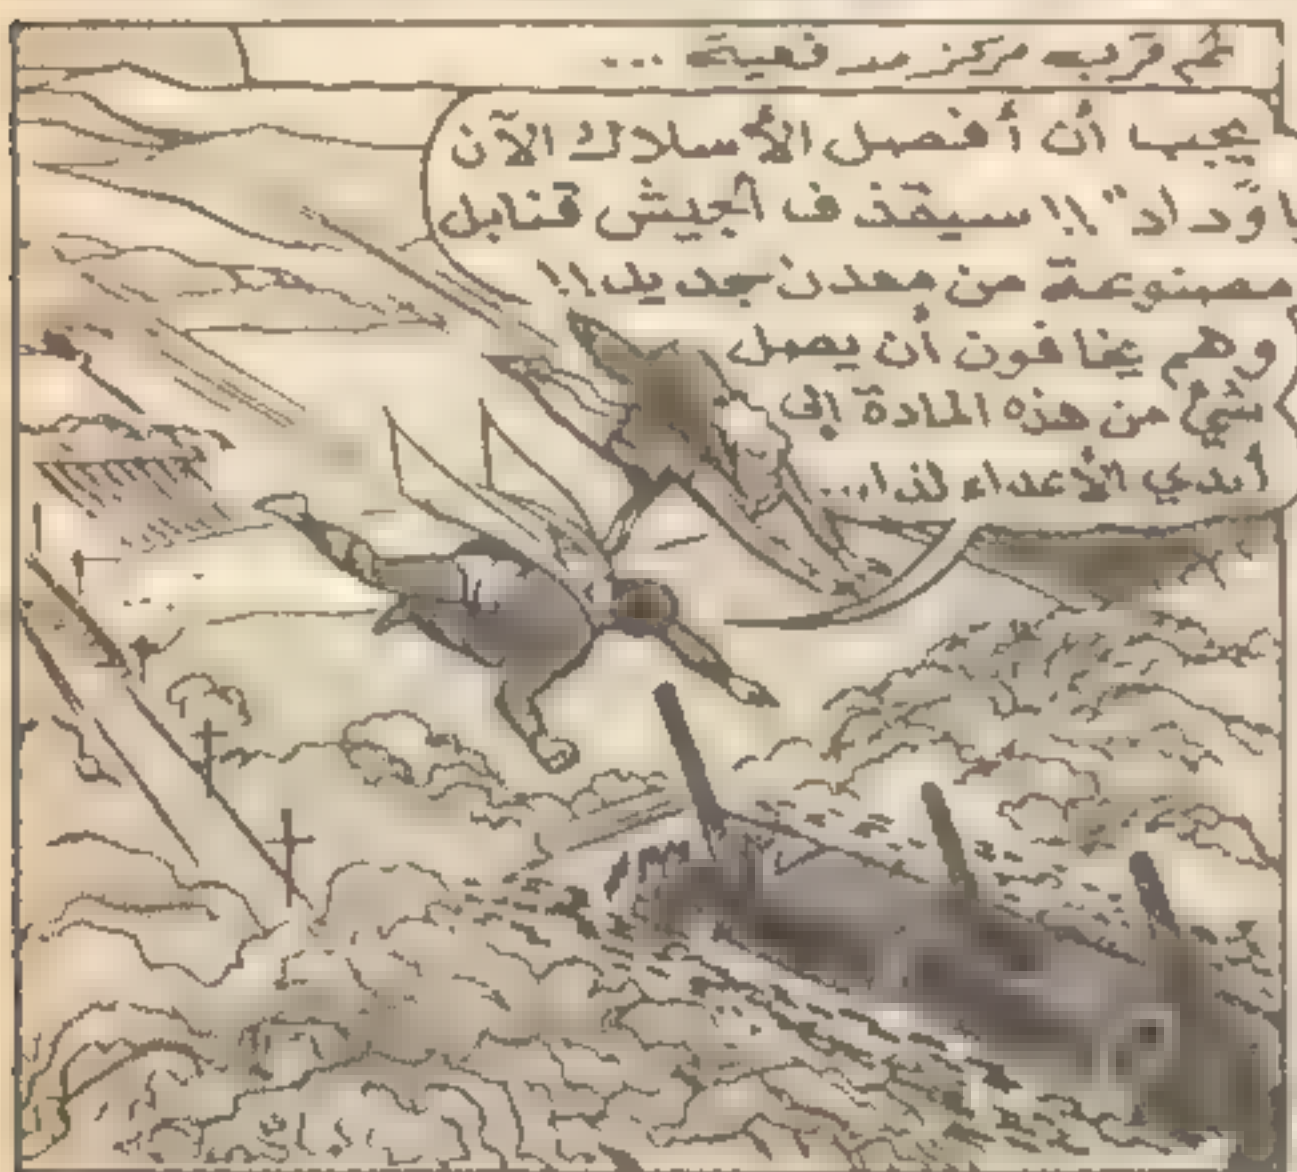 ثم قرب مركز مدفعية ...
يجب أن أفصل الأسلاك الآن
يا وداد"!! سيقذف الجيش قنابل
مصنوعة من معدن جديد!!
وهم يخافون أن يصل
شيء من هذه المادة إلى
أيدي الأعداء لذا...